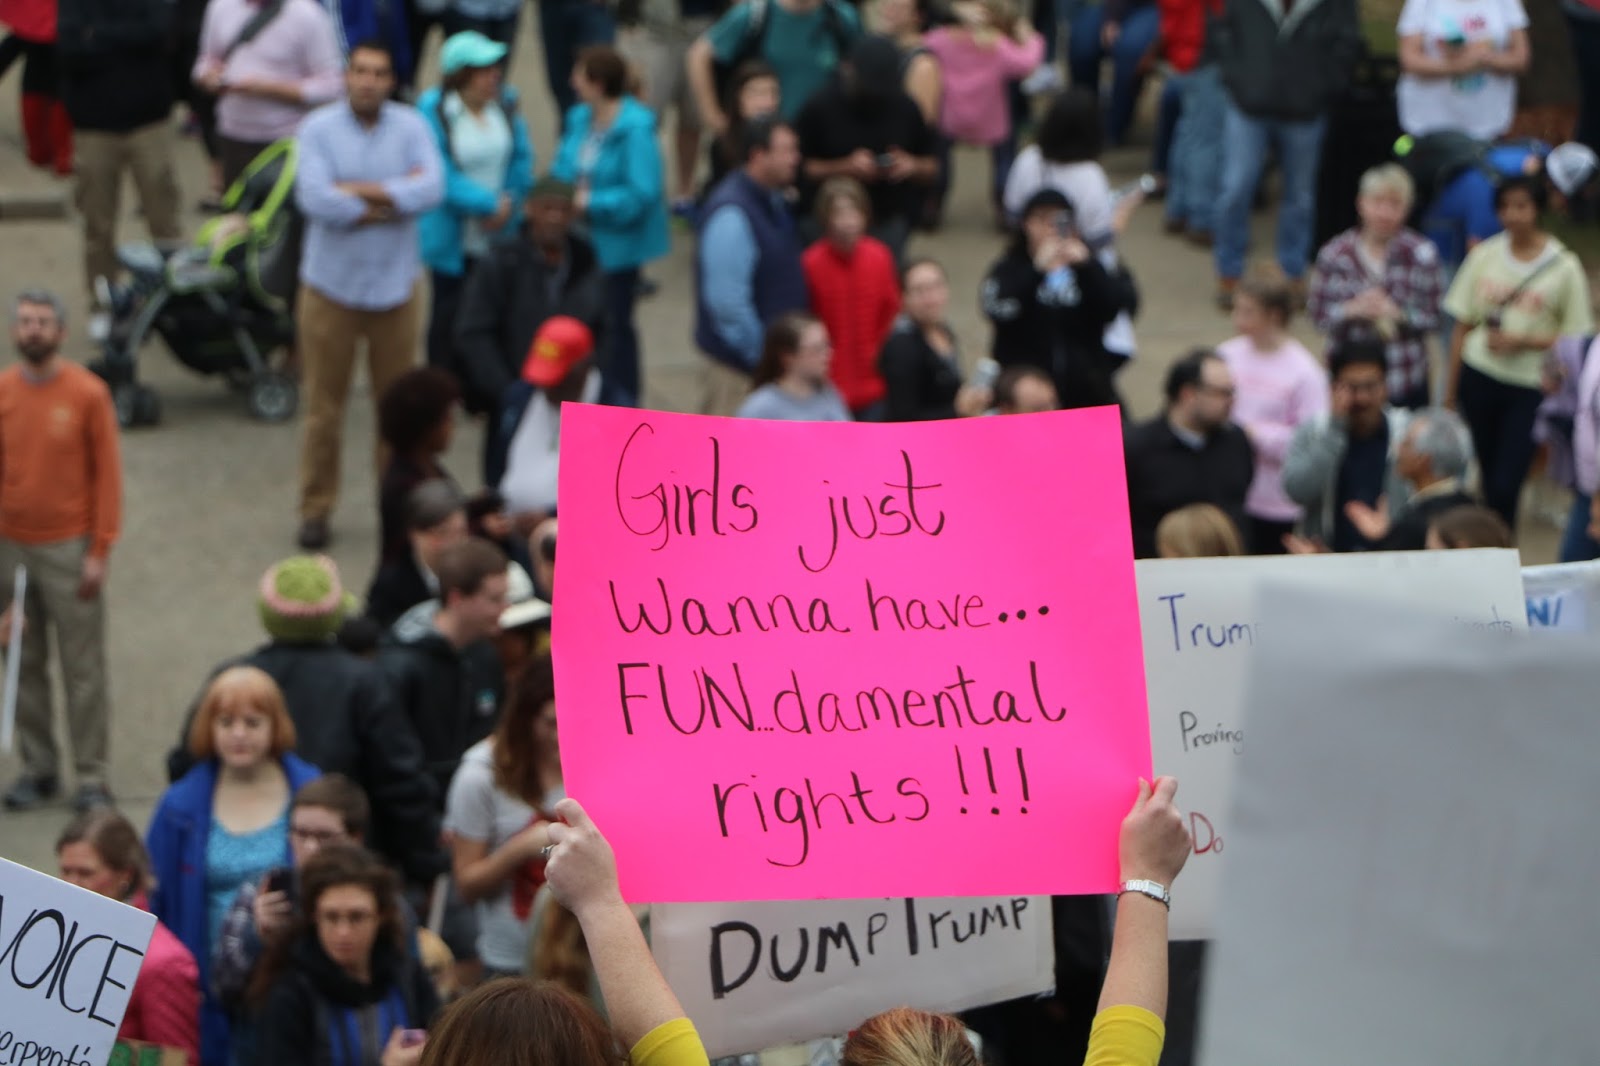 Girls just
Wanna have...
FUN...damental
rights!!!
DUMP Trump
Proving
Do
VOICE